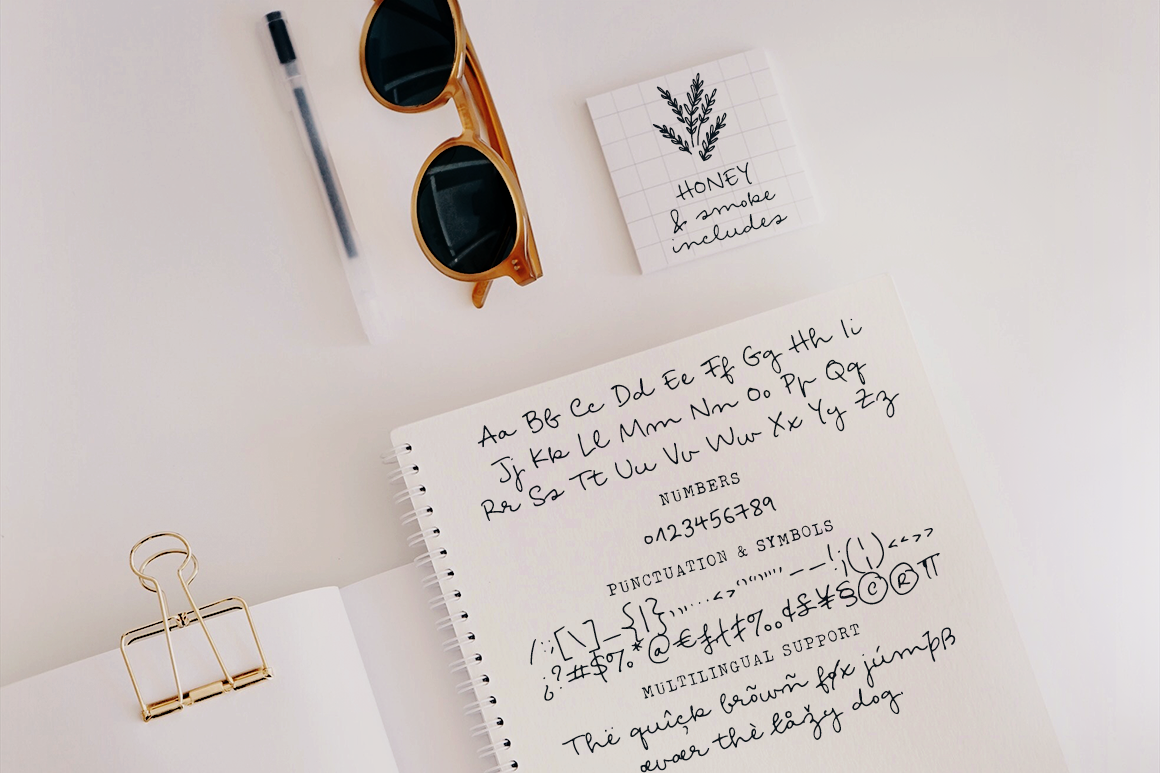 HONEY
& smoke
includes
Aa Bb Cc Dd Ee Ff Gg Hh Ii
Jj Kk Ll Mm Nn Oo Pp Qq
Rr Ss Tt Uu Vv Ww Xx Yy Zz
NUMBERS
0123456789
PUNCTUATION & SYMBOLS
/:;[\]_{|}
¿?#$%*@€
MULTILINGUAL SUPPORT
Thë quîçk brõwñ føx júmpß
thè låžy dog.